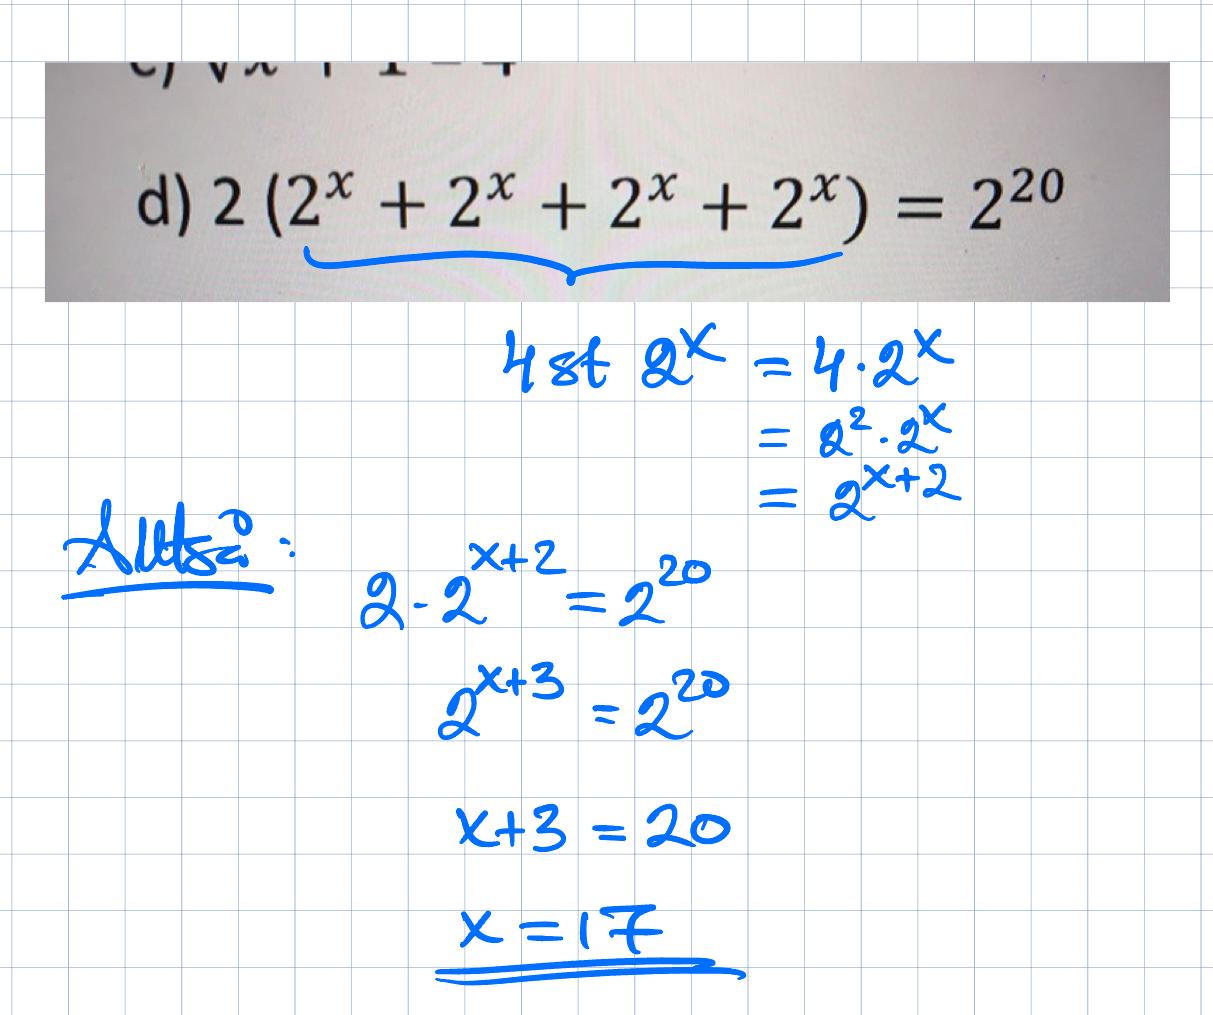 d) 2 (2^x + 2^x + 2^x + 2^x) = 2^20
4 st 2^x = 4·2^x
= 2^2·2^x
= 2^(x+2)
Alltså:
2·2^(x+2) = 2^20
2^(x+3) = 2^20
x+3 = 20
x = 17